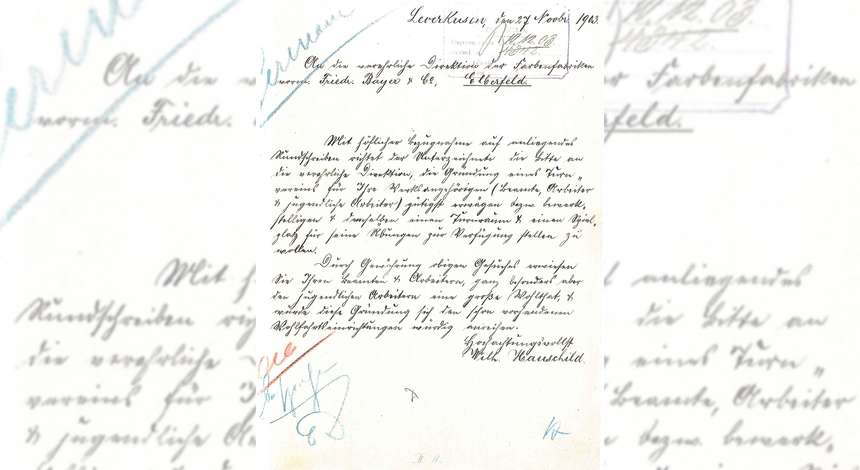 Leverkusen, den 27 Novbr. 1903.
10.12.03
An die verehrliche Direktion der Farbenfabriken
vorm. Friedr. Bayer & Co, Elberfeld.
Mit höflicher Bezugnahme auf anliegendes
Rundschreiben richtet der Unterzeichnete die Bitte an
die verehrliche Direktion, die Gründung eines Turn-
vereins für Ihre Werksangehörigen (Beamte, Arbeiter
& jugendliche Arbeiter) gütigst erwägen bezw. bewerk-
stelligen & demselben einen Turnraum & einen Spiel-
platz für seine Übungen zur Verfügung stellen zu
wollen.
Durch Genehmigung obigen Gesuches erwiesen
Sie Ihren Beamten & Arbeitern, ganz besonders aber
den jugendlichen Arbeitern eine große Wohlthat, &
würde diese Gründung sich den schon vorhandenen
Wohlfahrtseinrichtungen würdig anreihen.
Hochachtungsvollst
Wilh. Hauschild.